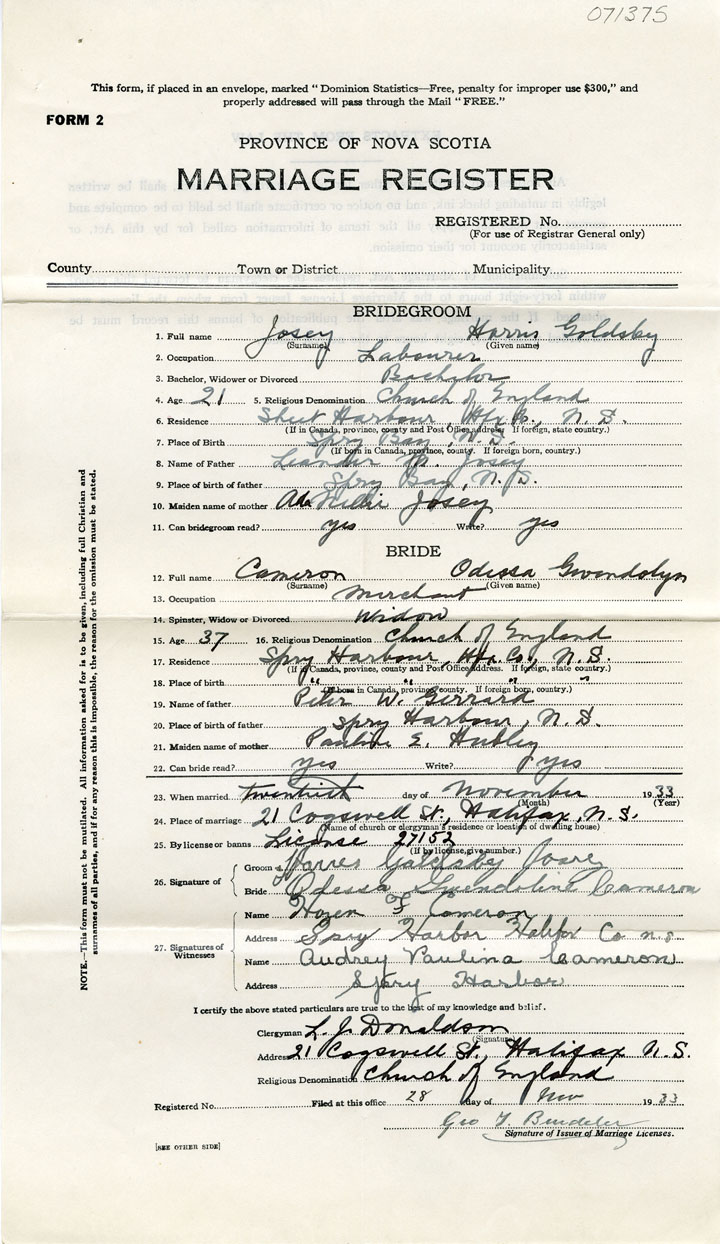 071375
This form, if placed in an envelope, marked "Dominion Statistics—Free, penalty for improper use $300," and
properly addressed will pass through the Mail "FREE."
FORM 2
PROVINCE OF NOVA SCOTIA
MARRIAGE REGISTER
REGISTERED No.
(For use of Registrar General only)
County Town or District Municipality
BRIDEGROOM
1. Full name Josey Harris Goldsby
(Surname) (Given name)
2. Occupation Labourer
3. Bachelor, Widower or Divorced Bachelor
4. Age 21 5. Religious Denomination Church of England
6. Residence Sheet Harbour, Hfx Co., N. S.
(If in Canada, province, county and Post Office address. If foreign, state country.)
7. Place of Birth Spry Bay, N. S.
(If born in Canada, province, county. If foreign born, country.)
8. Name of Father Leander Josey
9. Place of birth of father Spry Bay, N. S.
10. Maiden name of mother Ada Josey
11. Can bridegroom read? yes Write? yes
BRIDE
12. Full name Cameron Odessa Gwendolyn
(Surname) (Given name)
13. Occupation Merchant
14. Spinster, Widow or Divorced Widow
15. Age 37 16. Religious Denomination Church of England
17. Residence Spry Harbour, Hfx. Co., N. S.
(If in Canada, province, county and Post Office Address. If foreign, state country.)
18. Place of birth " " " "
(If born in Canada, province, county. If foreign born, country.)
19. Name of father Peter W. Gerrard
20. Place of birth of father Spry Harbour, N. S.
21. Maiden name of mother Pauline E. Hubley
22. Can bride read? yes Write? yes
23. When married twentieth day of November 1933
(Month) (Year)
24. Place of marriage 21 Cogswell St., Halifax, N. S.
(Name of church or clergyman's residence or location of dwelling house)
25. By license or banns License 27153
(If by license, give number.)
26. Signature of
Groom Josey
Bride Odessa Gwendoline Cameron
27. Signatures of Witnesses
Name Hazen F Cameron
Address Spry Harbor Halifax Co n.s.
Name Audrey Paulina Cameron
Address Spry Harbor
I certify the above stated particulars are true to the best of my knowledge and belief.
Clergyman L. J. Donaldson
(Signature)
Address 21 Cogswell St., Halifax N. S.
Religious Denomination Church of England
Registered No. Filed at this office 28 day of Nov 1933
Geo
Signature of Issuer of Marriage Licenses.
[SEE OTHER SIDE]
NOTE.—This form must not be mutilated. All information asked for is to be given, including full Christian and
surnames of all parties, and if for any reason this is impossible, the reason for the omission must be stated.